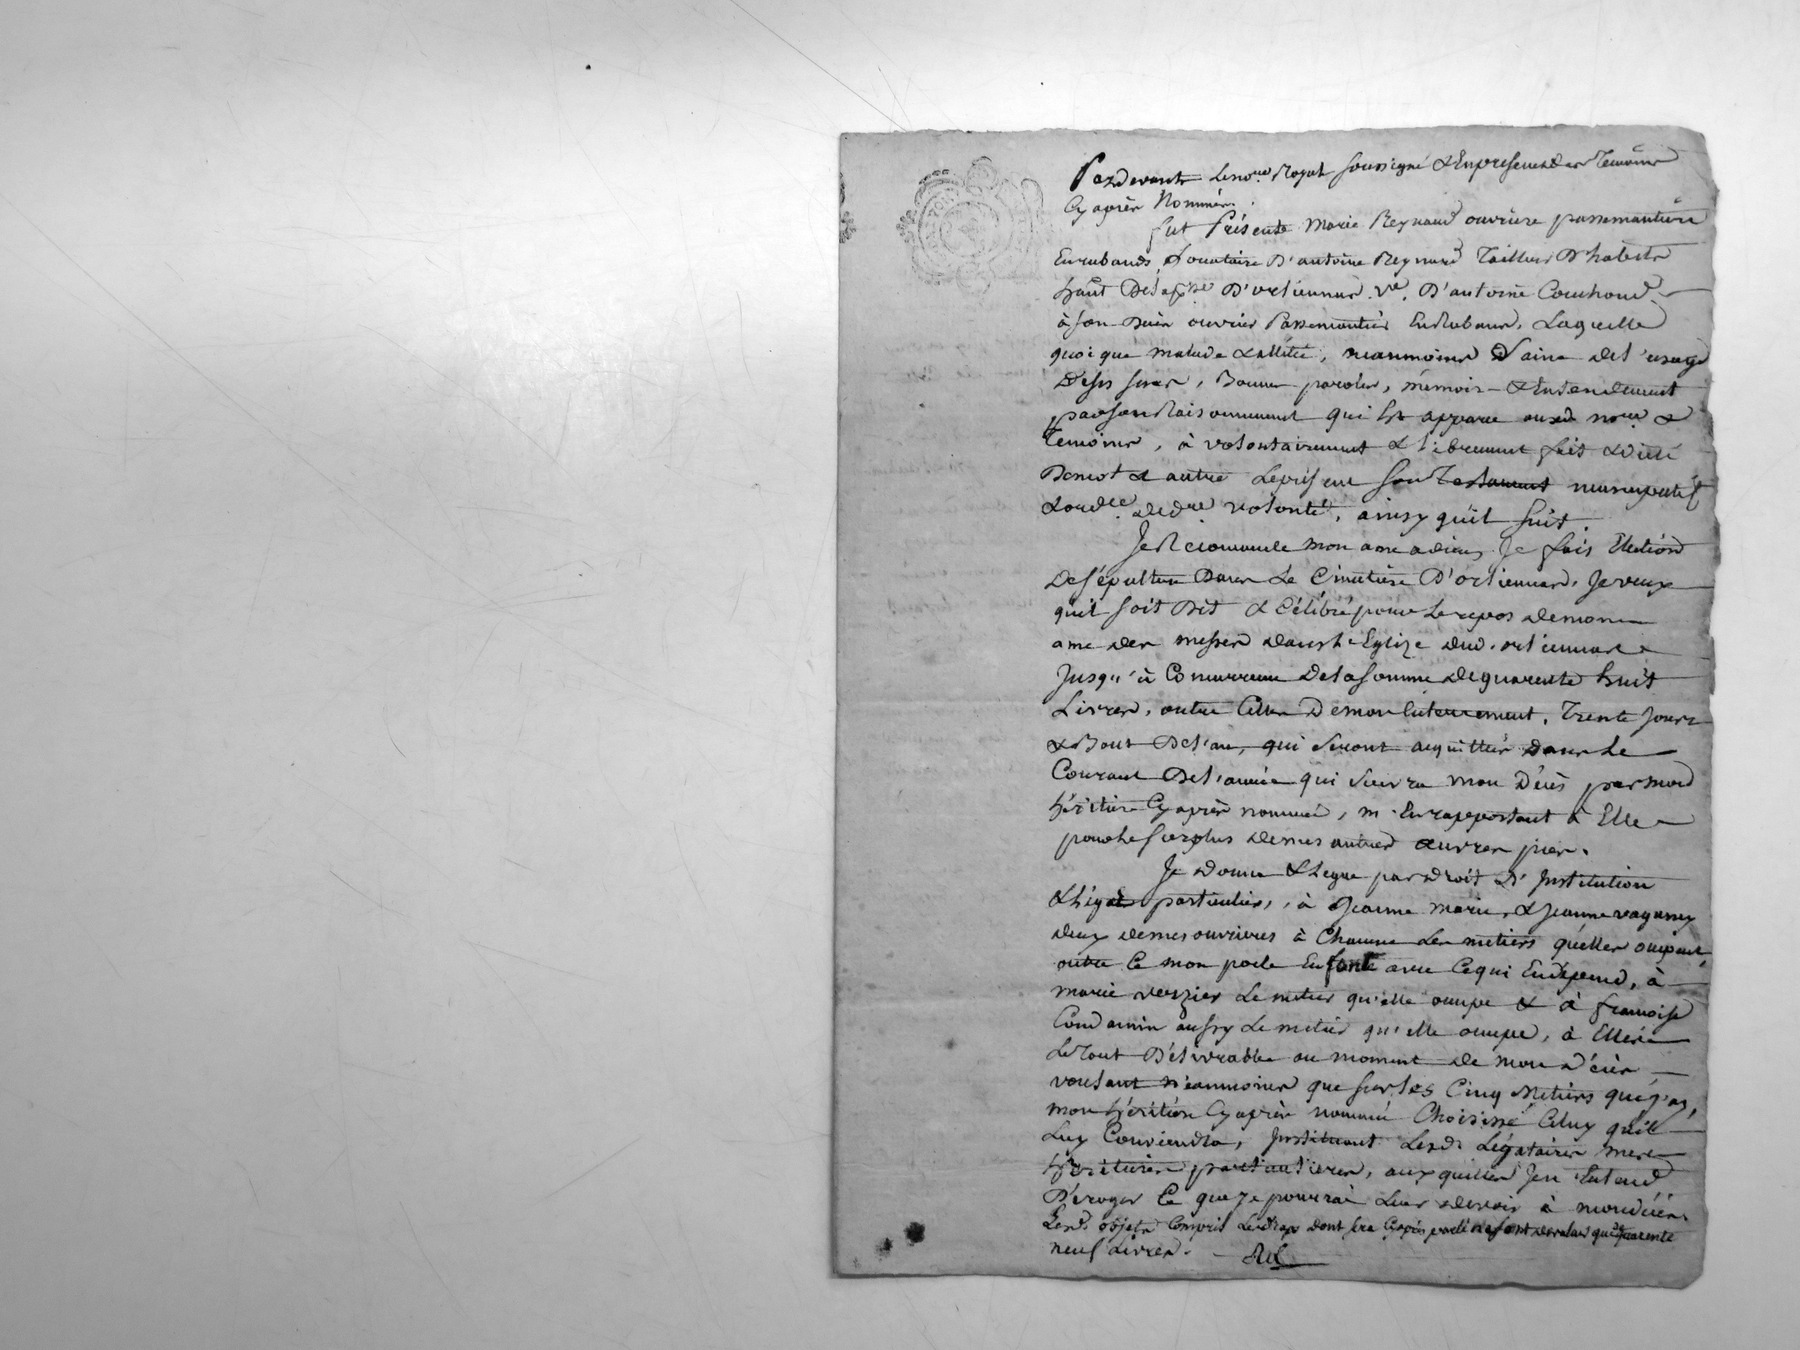 Pardevant Le no.re Royal soussigné & En presence des Temoins
Cy après Nommés.
fut Présente Marie Reynaud ouvriere passementiere
En rubands, Locataire D'antoine Reynard Tailleur D'habits
hant De la p.sse D'orliennas v.e D'antoine
à son vivant ouvrier Passementier En Rubans, Laquelle
quoi que malade & allitée, neanmoins Saine de l'usage
De ses sens, Bonne parole, mémoir & Entendement
par son Raisonnement qui Est apparu aux d. no.re &
Temoins, à volontairement & librement fait & Dicté
De mot à autre Le present son Testament nuncupatif
& ord.re de d.re volonté, ainsy quil suit.
Je Recommande mon ame a dieu, Je fais Election
De sépulture Dans Le Cimetière D'orliennas, Je veux
quil soit Dit & Célébré pour Le repos de mon
ame des messes dans L'Eglize dud. orliennas
Jusqu'à Concurrence De la somme de quarente huit
Livres, outre Celles De mon Enterrement, Trente Jours
& Bout De l'an, qui seront acquittés Dans Le
Courant De l'année qui suivra mon Décès par mon
héritière Cy après nommé, m'En rapportant à Elle
pour Le surplus de mes autres œuvres pies.
Je Donne & Legue par Droit D'Institution
& Légat particulier, à Jeanne Marie, & Jeanne
deux de mes ouvrieres à Chacune Les métiers qu'elles occupent,
outre Ce mon poele En fonte avec Ce qui En dépend, à
marie verzier Le metier qu'elle occupe & à françoise
Condamin aussy Le metier qu'elle occupe, à Elles
Le Tout Délivrable au moment de mon décès,
voulant néanmoins que sur les Cinq Métiers que j'ay,
mon héritière Cy après nommé Choisisse Celuy quil
Luy Conviendra, Instituant Lesd. Légataires mes
héritieres particulieres, aux quelles Jen Entend
Déroger Ce que je pourrai Leur devoir à mon décès.
Lesd. objets Compris Les draps dont sera Cy après parlé ne sont de valeur que de quarente
neuf Livres.